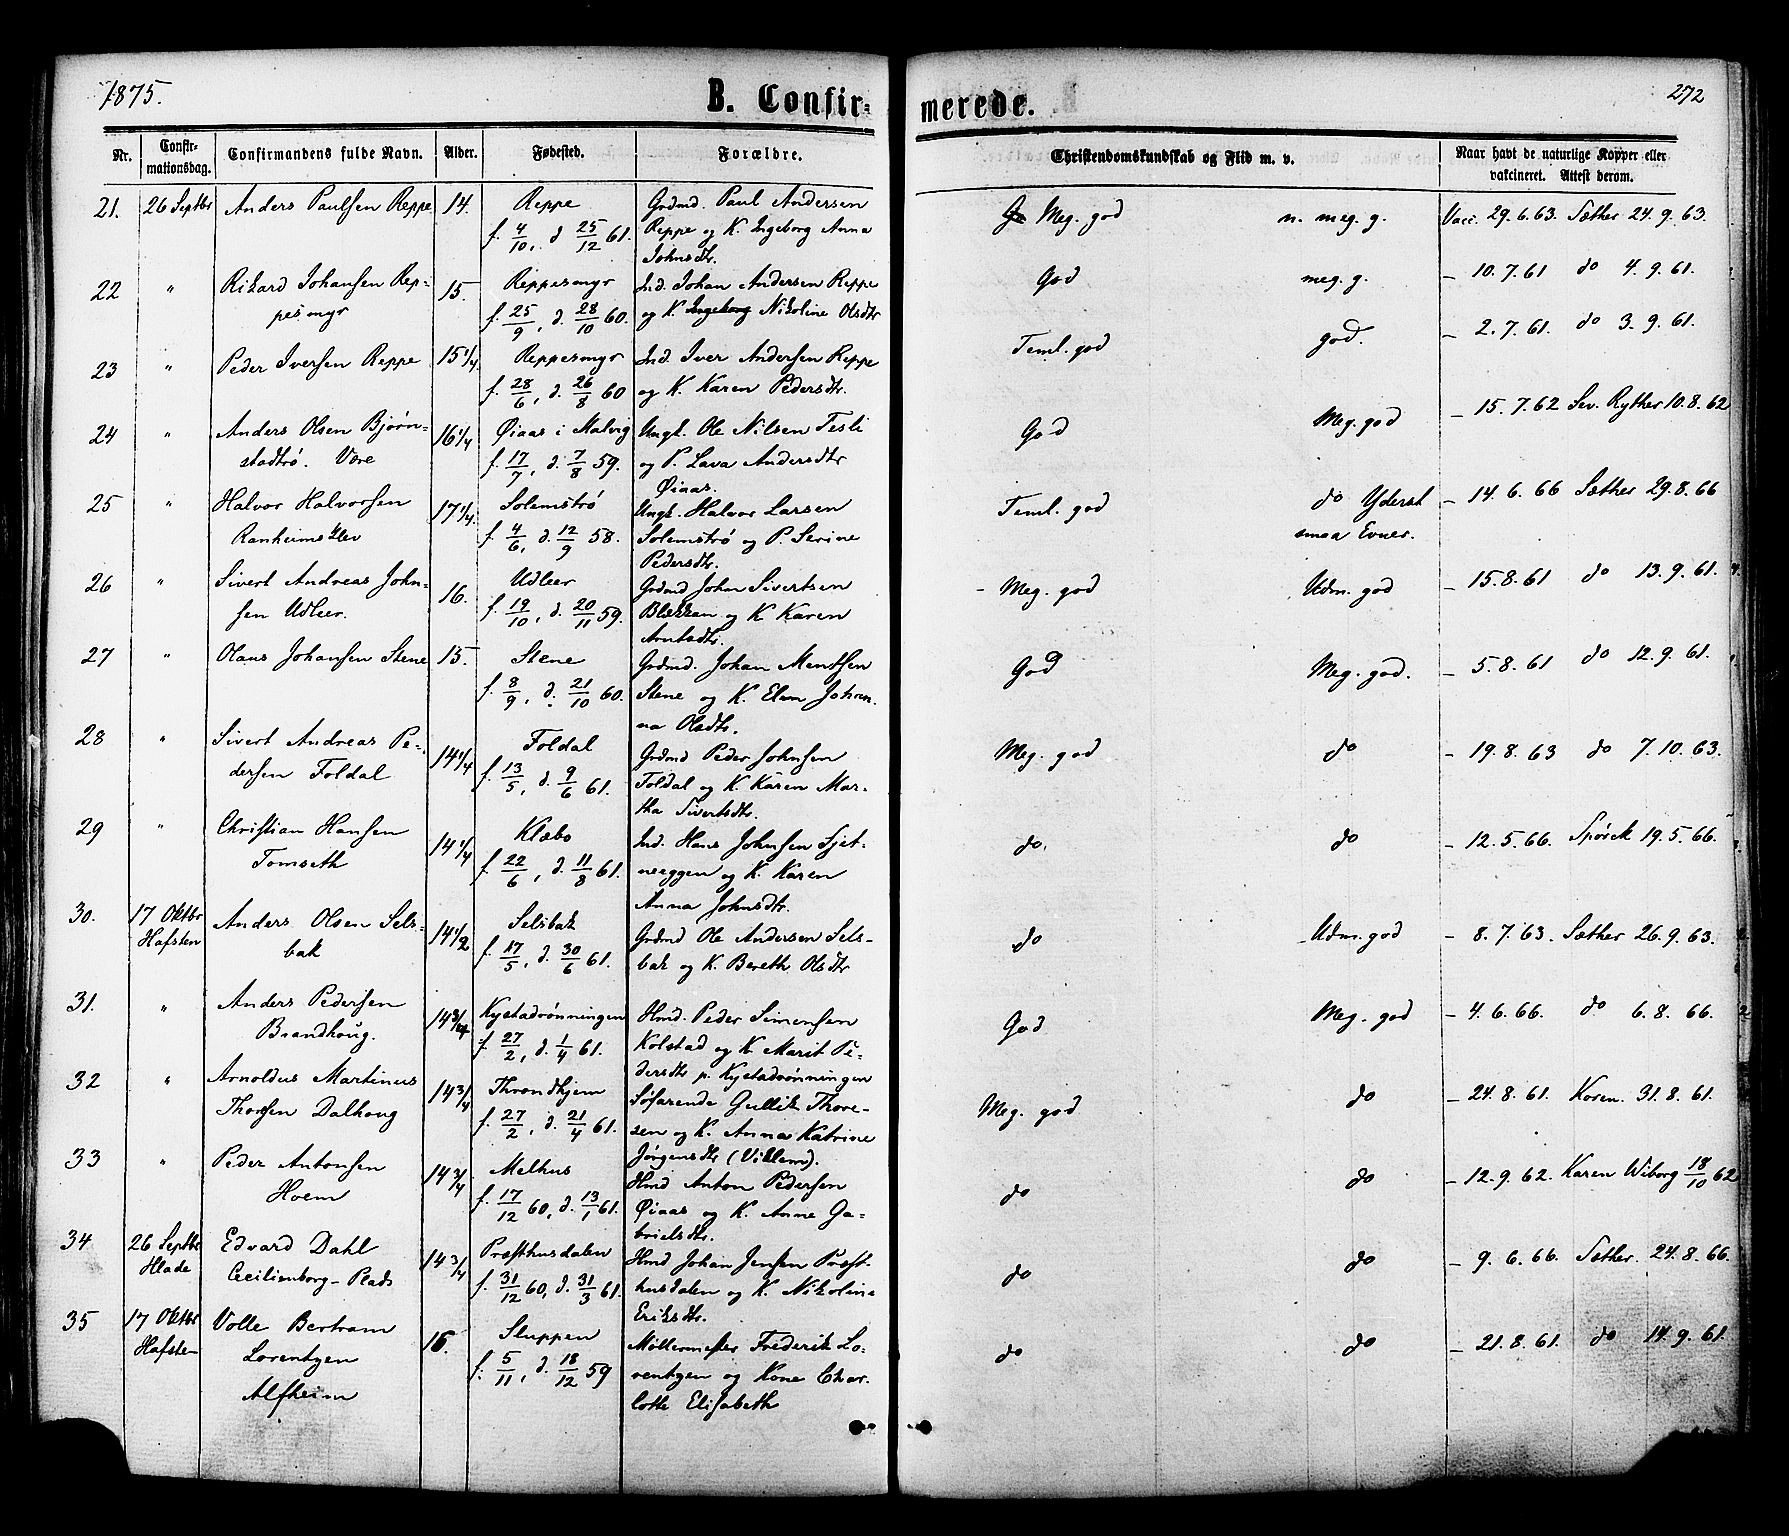 1875.
B. Confir-
merede.
272
Nr. Confir-mationsdag. Confirmandens fulde Navn. Alder. Fødested. Forældre. Christendomskundskab og Flid m. v. Naar havt de naturlige Kopper eller vakcineret. Attest derom.
21. 26 Septbr Anders Paulsen Reppe 14. Reppe Grdmd. Paul Andersen Meg. god n. meg. g. Vacc. 29.6.63. Sæther 24.9.63.
f. 4/10, d. 25/12 61. Reppe og K. Ingeborg Anna
Johnsdtr.
22 " Rikard Johansen Rep- 15. Reppesmyr Ind. Johan Andersen Reppe God meg. g. – 10.7.61 do 4.9.61.
pesmyr f. 25/9, d. 28/10 60. og K. Ingeborg Nikoline Olsdtr
23 " Peder Iversen Reppe 15 1/4. Reppesmyr Ind. Iver Andersen Reppe Teml. god god. – 2.7.61. do 3.9.61.
f. 28/6, d. 26/8 60 og K. Karen Pedersdtr.
24 " Anders Olsen Bjørn- 16 1/4 Øiaas i Malvig Ungk. Ole Nilsen Tesli God Meg. god – 15.7.62 Sev. Ryther 10.8.62
stadtrø. Være f. 17/7, d. 7/8 59. og P. Lava Andersdtr
Øiaas.
25 " Halvor Halvorsen 17 1/4. Solemstrø Ungk. Halvor Larsen Teml. god do Yderst – 14.6.66 Sæther 29.8.66
Ranheimsklev f. 4/6, d. 12/9 58. Solemstrø og P. Serine smaa Evner.
Pedersdtr.
26 " Sivert Andreas John- 16. Udleer Grdmd John Sivertsen – Meg. god Udm. god – 15.8.61 do 13.9.61.
sen Udleer. f. 19/10, d. 20/11 59. Blekkan og K Karen
Arntsdtr.
27 " Olaus Johansen Stene 15. Stene Grdmd. Johan Mentsen God Meg. god. – 5.8.61 do 12.9.61.
f. 8/9, d. 21/10 60. Stene og K. Elen Johan-
na Olsdtr.
28 " Sivert Andreas Pe- 14 1/4 Foldal Grdmd Peder Johnsen Meg. god do – 19.8.63 do 7.10.63.
dersen Foldal f. 13/5, d. 9/6 61. Foldal og K. Karen Mar-
tha Sivertsdtr.
29 " Christian Hansen 14 1/4 Klæbo Ind. Hans Johnsen Sjet- do. do – 12.5.66. Spörck 19.5.66.
Tomseth f. 22/6, d. 11/8 61. neeggen og K. Karen
Anna Johnsdtr.
30. 17 Oktbr Anders Olsen Sels- 14 1/2 Selsbak Grdmd Ole Andersen Sels- do Udm. god – 8.7.63. Sæther 26.9.63.
Hafsten bak f. 17/5, d. 30/6 61. bak og K. Bereth Olsdtr
31. " Anders Pedersen 14 3/4 Kystadrønningen Hmd. Peder Simensen God Meg. god – 4.6.66. do 6.8.66.
Brandhoug. f. 27/2, d. 1/4 61. Kolstad og K. Marit Pe-
dersdtr p. Kystadrønningen
32 " Arnoldus Martinus 14 3/4 Throndhjem Søfarende Gullik Thore- Meg. god do – 24.8.61. Koren. 31.8.61.
Thorsen Dalhoug f. 27/2, d. 21/4 61. sen og K. Anna Katrine
Jørgensdtr (Villem).
33 " Peder Antonsen 14 3/4 Melhus Hmd Anton Pedersen do do – 12.9.62. Karen Wiborg 18/10 62
Hoem f. 17/12 60, d. 13/1 61. Øiaas og K. Anne Ga-
brielsdtr.
34 26 Septbr Edvard Dahl 14 3/4 Præsthusdalen Hmd Johan Jensen Præst- do do – 9.6.66. Sæther. 24.8.66.
Hlade Cecilienborg-Plads f. 31/12 60, d. 31/3 61. husdalen og K. Nikoline
Eriksdtr.
35 17 Oktbr Volle Bertram 16. Sluppen Møllermester Frederik Lo- do do – 21.8.61. do 14.9.61.
Hafste- Lorentzen f. 5/11, d. 18/12 59 rentzen og Kone Char-
Alfheim lotte Elisabeth